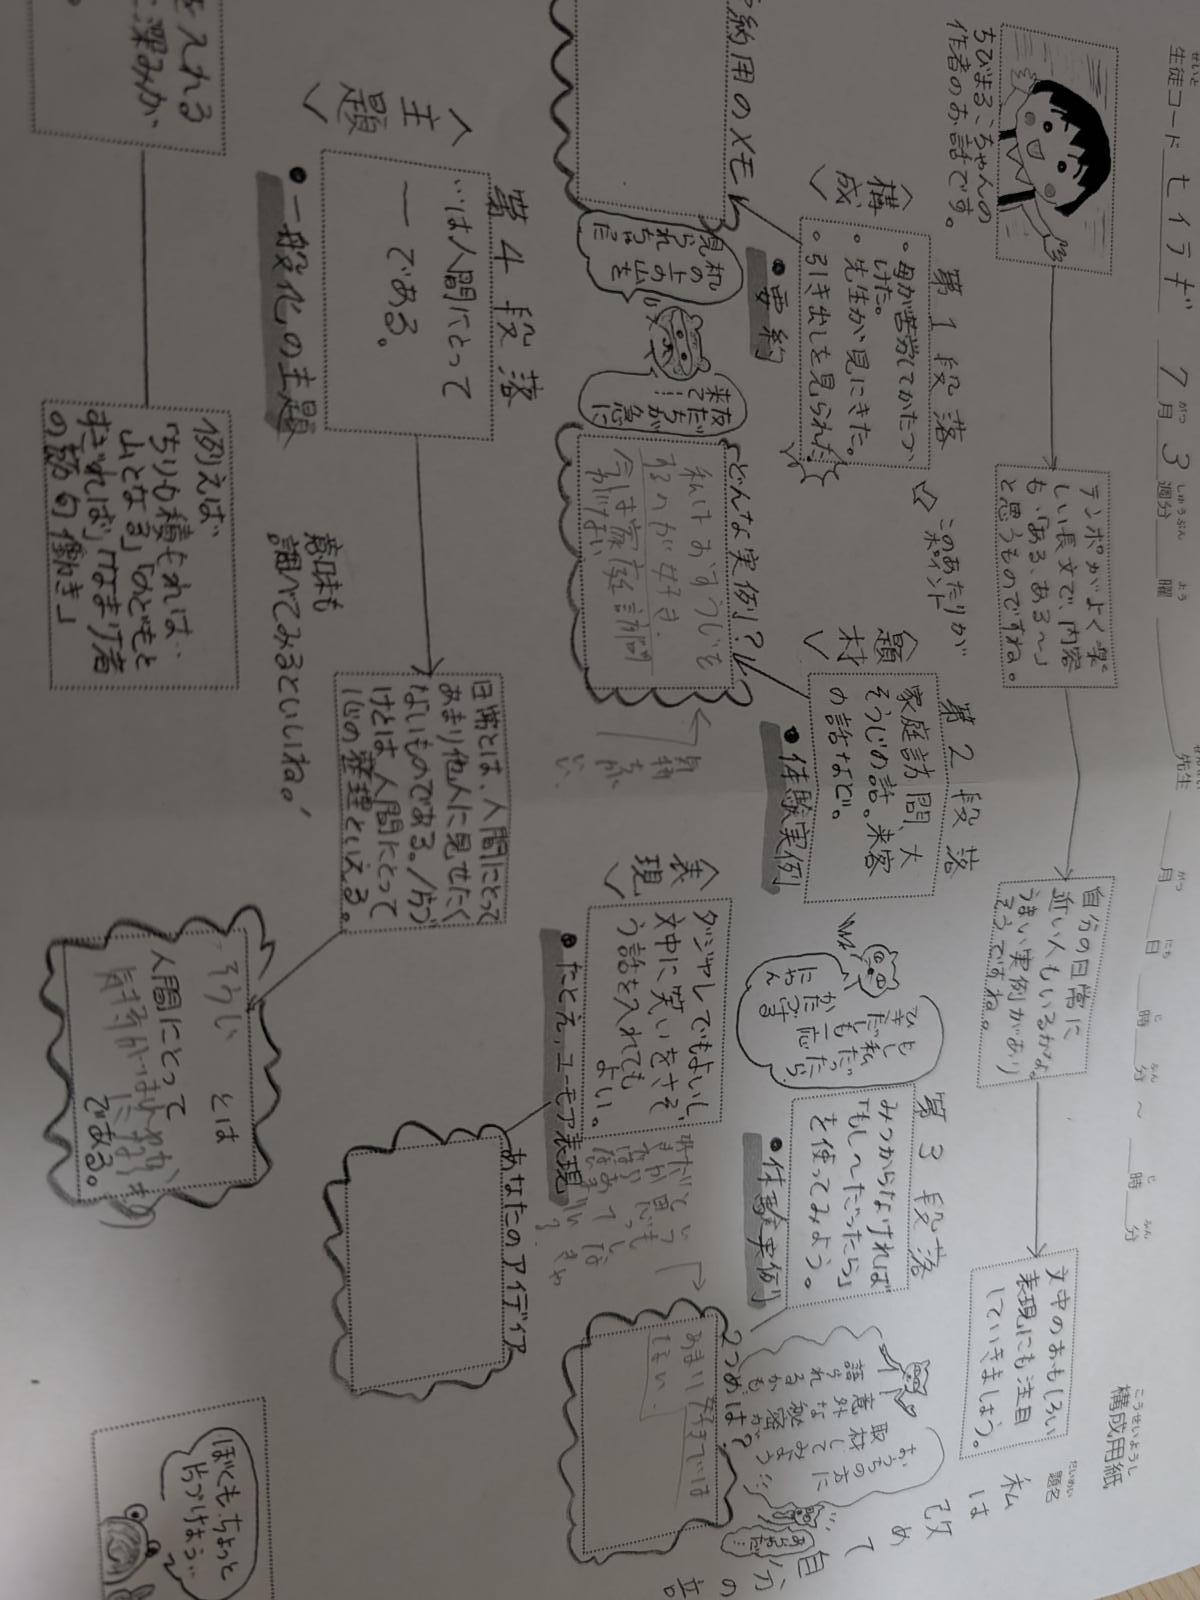 構成用紙
こうせいようし
題名
だいめい
私は
改めて
自分の
生徒コード セイテギ 7月3週分 曜 先生 月 日 時 分 ～ 時 分
ちびまるこちゃんの
作者のお話です。
テンポがよく楽
しい長文で、内容
も、「ある、ある〜」
と思うものですね。
自分の日常に
近い人もいるかな。
うまい実例があり
そうですね。
文中のおもしろい
表現にも注目
していきましょう。
第1段落
〈構成〉
・母が苦労してかたづ
けた。
・先生が見にきた。
・引き出しを見られた。
このあたりが
ポイント
●要約
約用のメモ
机の上の山を
見られちまった
夜だちが急に
来て!
第2段落
〈題材〉
家庭訪問、大
そうじの話。来客
の話など。
●体験実例
どんな実例?
私はおそうじを
するのが好き。
今は家庭訪問
第3段落
みつからなければ
「もし〜だったら」
を使ってみよう。
●体験実例
ひきだしも
おうちの方に
取材してみよう…
意外な秘密が
語られるかも
2つめは?
あまり好きでは
〈表現〉
ダジャレでもよいし、
文中に笑いをさそ
う話を入れても
よい。
●たとえ、ユーモア表現
あなたのアイディア
第4段落
〈主題〉
…は人間にとって
― である。
●一般化の主題
日常とは、人間にとって
あまり他人に見せたく
ないものである。/片づ
けとは人間にとって
心の整理といえる。
意味も
調べてみるといいね。!
を入れる
深みが
例えば
「ちりも積もれば
山となる」「のどもと
すぎれば」「なまけ者
の節句働き」
そうじ とは
人間にとって
である。
ぼくも、ちょっと
片づけよう…